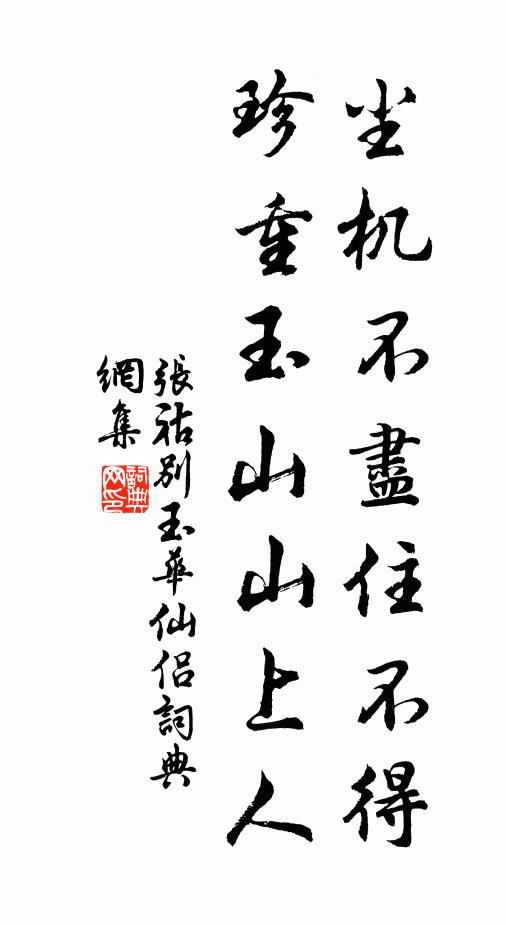 尘机不盡住不得
珍重玉山山上人
張祜别玉華仙侣詞典
網集
詞典
网印